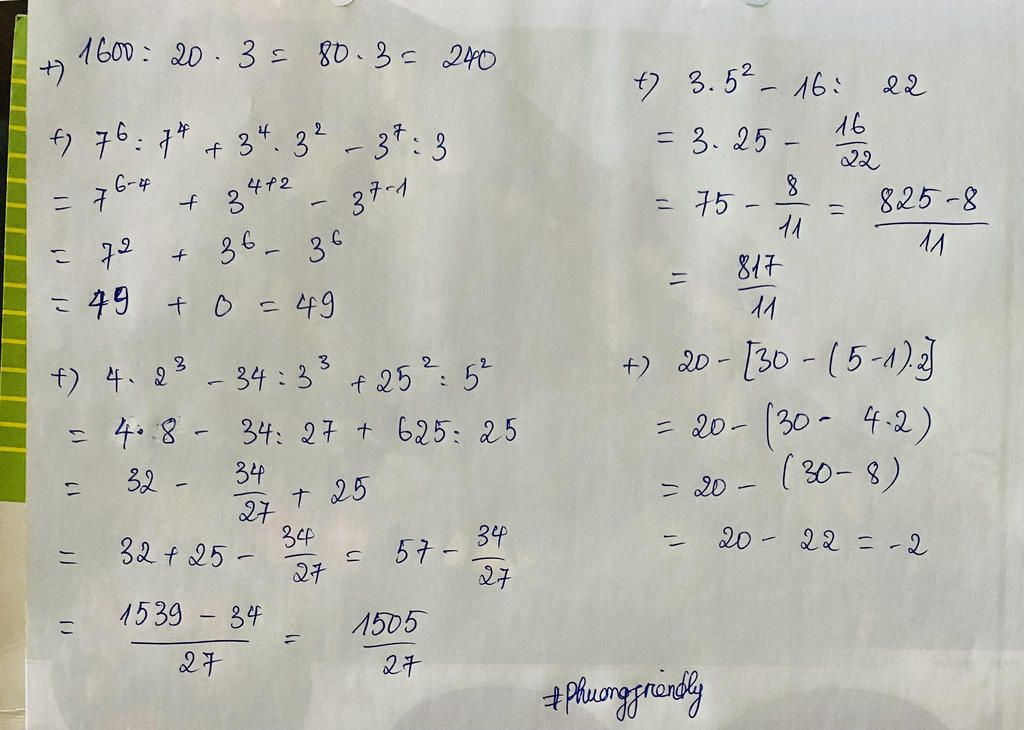 +) 1600 : 20 . 3 = 80 . 3 = 240
+) 7⁶ : 7⁴ + 3⁴ . 3² - 3⁷ : 3
= 7⁶⁻⁴ + 3⁴⁺² - 3⁷⁻¹
= 7² + 3⁶ - 3⁶
= 49 + 0 = 49
+) 4 . 2³ - 34 : 3³ + 25² : 5²
= 4 . 8 - 34 : 27 + 625 : 25
= 32 - 34/27 + 25
= 32 + 25 - 34/27 = 57 - 34/27
= (1539 - 34)/27 = 1505/27
+) 3 . 5² - 16 : 22
= 3 . 25 - 16/22
= 75 - 8/11 = (825 - 8)/11
= 817/11
+) 20 - [30 - (5 - 1) . 2]
= 20 - (30 - 4 . 2)
= 20 - (30 - 8)
= 20 - 22 = -2
#phuongfriendly